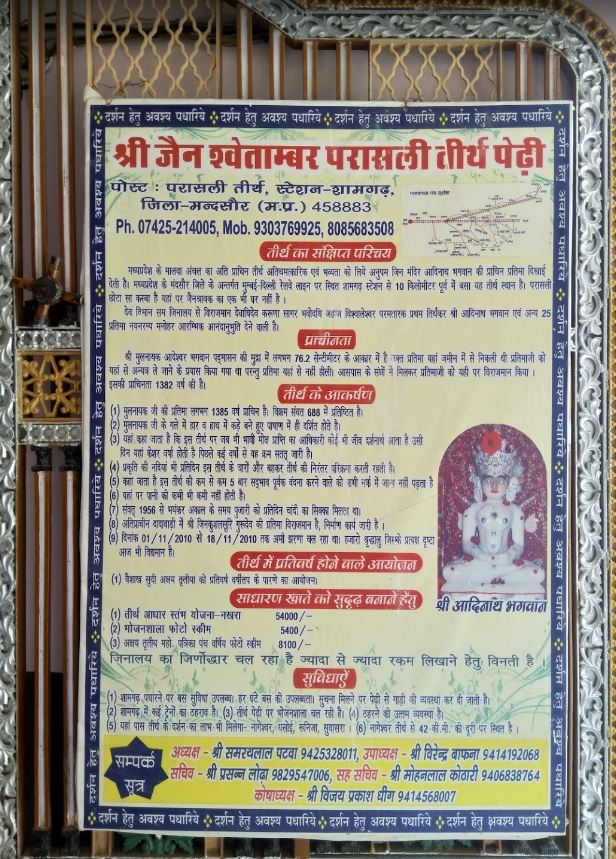 दर्शन हेतु अवश्य पधारिये ❖ दर्शन हेतु अवश्य पधारिये ❖ दर्शन हेतु अवश्य पधारिये ❖ दर्शन हेतु अवश्य पधारिये
श्री जैन श्वेताम्बर परासली तीर्थ पेढ़ी
पोस्ट : परासली तीर्थ, स्टेशन-शामगढ़,
जिला-मन्दसौर (म.प्र.) 458883
Ph. 07425-214005, Mob. 9303769925, 8085683508
तीर्थ का संक्षिप्त परिचय
मध्यप्रदेश के मालवा अंचल का अति प्राचिन तीर्थ अतिचमत्कारिक एवं भव्यता को लिये अनुपम जिन मंदिर आदिनाथ भगवान की प्राचिन प्रतिमा दिखाई
देती है। मध्यप्रदेश के मंदसौर जिले के अन्तर्गत मुम्बई-दिल्ली रेलवे लाइन पर स्थित शामगढ़ स्टेशन से 10 किलोमीटर पूर्व में बसा यह तीर्थ स्थान है। परासली
छोटा सा कस्बा है यहां पर जैनश्रावक का एक भी घर नहीं है।
देव विमान सम जिनालय से विराजमान देवाधिदेव करूणा सागर भवोदधि जहाज विश्वालेश्वर परमतारक प्रथम तिर्थंकर श्री आदिनाथ भगवान एवं अन्य 25
प्रतिमा नवनरम्य मनोहर आरंम्भिक आनंदानुभुति देने वाली है।
प्राचीनता
श्री मुलनायक आदेश्वर भगवान पद्मासन की मुद्रा में लगभग 76.2 सेन्टीमीटर के आकार में है उक्त प्रतिमा यहां जमीन में से निकली थी प्रतिमाजी को
यहां से अन्यत्र ले जाने के प्रयास किया गया था परन्तु प्रतिमा यहां से नहीं हीली। आसपास के संघो ने मिलकर प्रतिमाजी को यही पर विराजमान किया।
इसकी प्राचिनता 1382 वर्ष की है।
तीर्थ के आकर्षण
(1) मुलनायक जी की प्रतिमा लगभग 1385 वर्ष प्राचिन है। विक्रम संवत 688 में प्रतिष्ठित है।
(2) मुलनायक जी के गले में हार व हाथ में कड़े बने हुए पाषाण में ही दर्शित होते है।
(3) यहां कहा जाता है कि इस तीर्थ पर जब भी भावी मोक्ष प्राप्ति का आधिकारी कोई भी जीव दर्शनार्थ आता है उसी
दिन यहां केशर वर्षा होती है पिछले कई वर्षो से यह क्रम सतत् जारी है।
(4) प्रकृति की नदियां भी प्रतिदिन इस तीर्थ के चारों और बहकर तीर्थ की निरंतर परिक्रमा करती रहती है।
(5) कहा जाता है इस तीर्थ की कम से कम 5 बार सद्भाव पूर्वक वंदना करने वाले को कभी नर्क में जाना नहीं पड़ता है
(6) यहां पर पानी की कमी भी कमी नहीं होती है।
(7) संवत् 1956 से भयंकर अकाल के समय पुजारी को प्रतिदिन चांदी का सिक्का मिलता था।
(8) अतिप्राचीन दादावाड़ी में श्री जिनकुशलसुरि गुरूदेव की प्रतिमा विराजमान है, निर्माण कार्य जारी है।
(9) दिनांक 01/11/2010 से 18/11/2010 तक अमी झरणा चल रहा था। हजारो श्रृद्धालु जिस्के प्रत्यक्ष दृष्टा
आज भी विद्यमान है।
श्री आदिनाथ भगवान
तीर्थ में प्रतिवर्ष होने वाले आयोजन
(1) वैशाख सुदी अक्षय तृतीया को प्रतिवर्ष वर्षीतप के पारणे का आयोजन।
साधारण खाते को सुदृढ़ बनाने हेतु
(1) तीर्थ आधार स्तंभ योजना-नखरा 54000/-
(2) भोजनशाला फोटो स्कीम 5400/-
(3) अक्षय तृतीय महो. पत्रिका पंच वर्षिय फोटो स्कीम 8100/-
जिनालय का जिर्णोद्धार चल रहा है ज्यादा से ज्यादा रकम लिखाने हेतु विनती है ।
सुविधाऐं
(1) शामगढ़ पधारने पर बस सुविधा उपलब्ध। हर घंटे बस की उपलब्धता। सुचना मिलने पर पेढ़ी से गाड़ी की व्यवस्था कर दी जाती है।
(2) शामगढ़ में कई ट्रेनों का ठहराव है। (3) तीर्थ पेढ़ी पर भोजनशाला चल रही है। (4) ठहरने की उत्तम व्यवस्था है।
(5) यहां पास तीर्थ के दर्शन का लाभ भी मिलेगा- नागेश्वर, घसोई, रूनिजा, सुवासरा । (6) नागेश्वर तीर्थ से 42 कि.मी. की दूरी पर स्थित है ।
सम्पर्क सूत्र
अध्यक्ष - श्री समरथलाल पटवा 9425328011, उपाध्यक्ष - श्री विरेन्द्र बाफना 9414192068
सचिव - श्री प्रसन्न लोढ़ा 9829547006, सह सचिव - श्री मोहनलाल कोठारी 9406838764
कोषाध्यक्ष - श्री विजय प्रकाश धींग 9414568007
दर्शन हेतु अवश्य पधारिये ❖ दर्शन हेतु अवश्य पधारिये ❖ दर्शन हेतु अवश्य पधारिये ❖ दर्शन हेतु अवश्य पधारिये